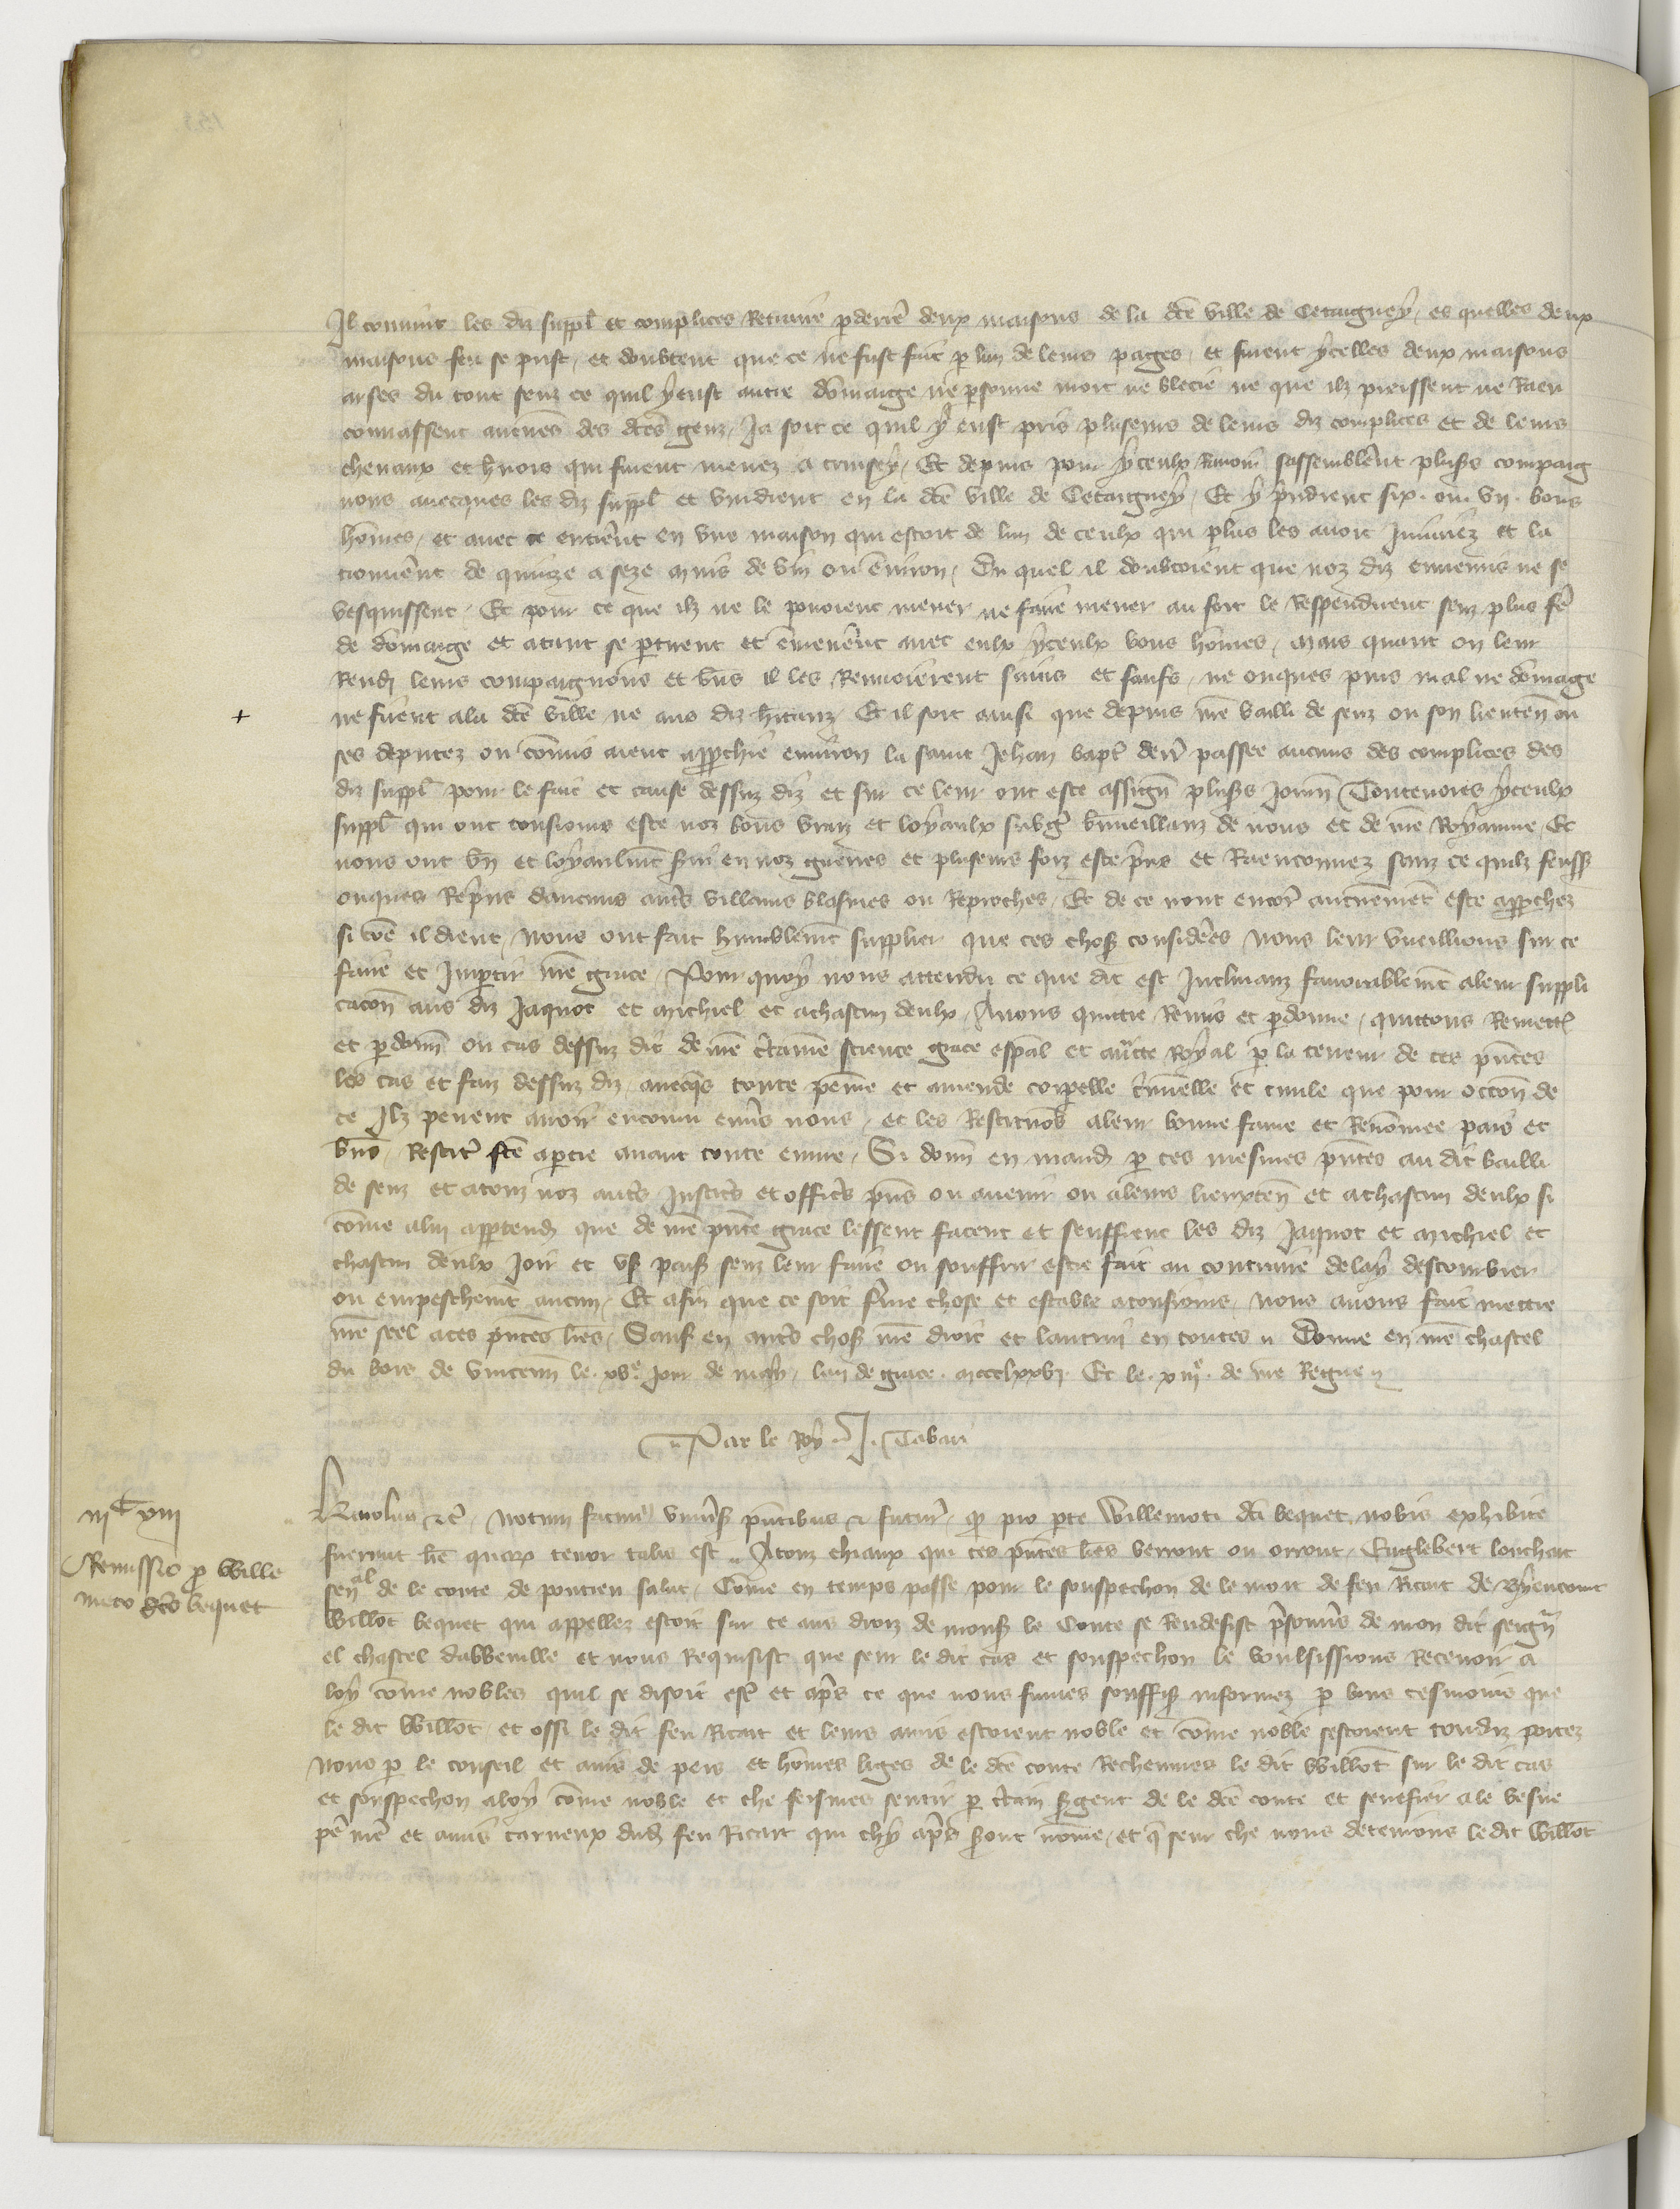 Il convint les diz suppl et complices Retraire p derrie deux maisons de la dce ville de Cetaigney, es quelles deux
maisons feu se prist, et doubtent que ce ne fust fait p lun de leurs pages, et furent ycelles deux maisons
arses du tout senz ce quil y eust autre domaige ne psonne mort ne blecie ne que ilz preissent ne Raen
connassent aucunes des dces genz, Ja soit ce quil y eust pris pluseurs de leurs diz complices et de leurs
chevaux et hnois qui furent menez a cruisey, Et depuis pour yceulx Ravoir sassemblent pluss compaig
nons avecques les diz suppl et vindrent en la dce ville de Cetaigney, Et y prindrent six. ou. vii. bons
homes, et avec ce entrerent en une maison qui estoit de lun de ceulx qui plus les avoit Iniuriez et la
trouverent de quinze a seze muis de vin ou environ, Du quel il doubtoient que noz diz ennemis ne se
vesquissent, Et pour ce que ilz ne le povoient mener ne faire mener au fort le Respendirent senz plus fe
de domaige et atant se ptirent et emenerent avec eulx yceulx bons homes, mais quant on leur
Rendi leurs compaignons et bns il les Renvoierent sains et saufs, ne onques puis mal ne domage
ne firent ala dce ville ne aus diz hitanz, Et il soit ainsi que depuis nre bailli de senz ou son lieuten ou
ses deputez ou comis aient approchie environ la saint Jehan bapt derr passee aucuns des complices des
diz suppl pour le fait et cause dessuz diz et sur ce leur ont este assign pluss journ Contenoies yceulx
suppl qui ont tousiours este noz bons vraiz et loyaulx subgez bnveillanz de nous et de nre Royaume, Et
nous ont bn et loyaulmt servi en noz guerres et pluseurs foiz este prins et Raenconnez sanz ce quilz feuss
onques Reprins daucuns autrs villains blasmes ou Reproches, Et de ce nont encor aucunemet este approchez
si coe il dient, Nous ont fait humblemt supplier que ces choses considerees nous leur vueillions sur ce
faire et Impartir nre grace, Pour quoy nous attendu ce que dit est Inclinanz favorablemt aleur suppli
cacon aus diz Jaquot et Michiel et achascun deulx, Avons quittie Remis et pdonne, quittons Remett
et pdonn ou cas dessuz dit de nre ctaine science grace espal et auctte Royal p la teneur de ces pntes
les cas et faiz dessuz diz, avecqs toute peine et amende corpelle criminelle et civile que pour occon de
ce Ilz pevent avoir encouru envs nous, et les Restituos aleur bonne fame et Renomee pais et
bns, Restit fce aptie avant toute euvre, Si donn en mand p ces mesmes pntes au dit bailli
de senz et atouz noz autrs Justic et officrs pns ou avenir ou aleurs lieuxten et achascun deulx si
come alui apptend que de nre pnte grace lessent facent et seuffrent les diz Jaquot et Michiel et
chascun deulx Joir et us paisib senz leur faire ou souffrir estre fait au contraire delay descombrier
ou empeschemt aucun, Et afin que ce soit ferme chose et estable atousiours, Nous avons fait mettre
nre seel aces pntes lres, Sauf en autrs choses nre droit et lautrui en toutes. Donne en nre chastel
du bois de vincenn le. xve. jour de may, lan de grace. mccclxxvi. Et le. xiiie. de nre Regne
Par le Roy. J. Tabari
iiiC viii
Remissio p Wille
moto dco bequet
Karolus &c, Notum facim univs pntibus & futur, qp pro pte Willemoti dci bequet nobis exhibite
fuerunt lre quarx tenor talis est. Atouz chiaux qui ces pntes lres verront ou orront, Englebert louchart
senal de le conte de pontieu salut, Come en temps passe pour le souspechon de le mort de feu Ricart de Byencourt
Willot bequet qui appellez estoit sur ce aus droiz de mons le Conte se Rendesist prisonns de mon dit seignr
el chastel dabbeville et nous Requisist que seur le dit cas et souspechon le voulsissions Recevoir a
loy come nobles quil se disoit estre et aps ce que nous fumes souffis informez p bons tesmoins que
le dit Willot et ossi le dit feu Ricart et leurs amis estoient noble et come noble sestoient toudiz portez
Nous p le conseil et avis de pers et homes liges de le dce conte Rechumes le dit Willot sur le dit cas
et souspechon aloy come noble et che feismes sentir p ctain sgent de le dce conte et senefier ale vesve
pe me et amis carneux dud feu Ricart qui chy aps sont nome, et q seur che nous deteniens ledit Willot